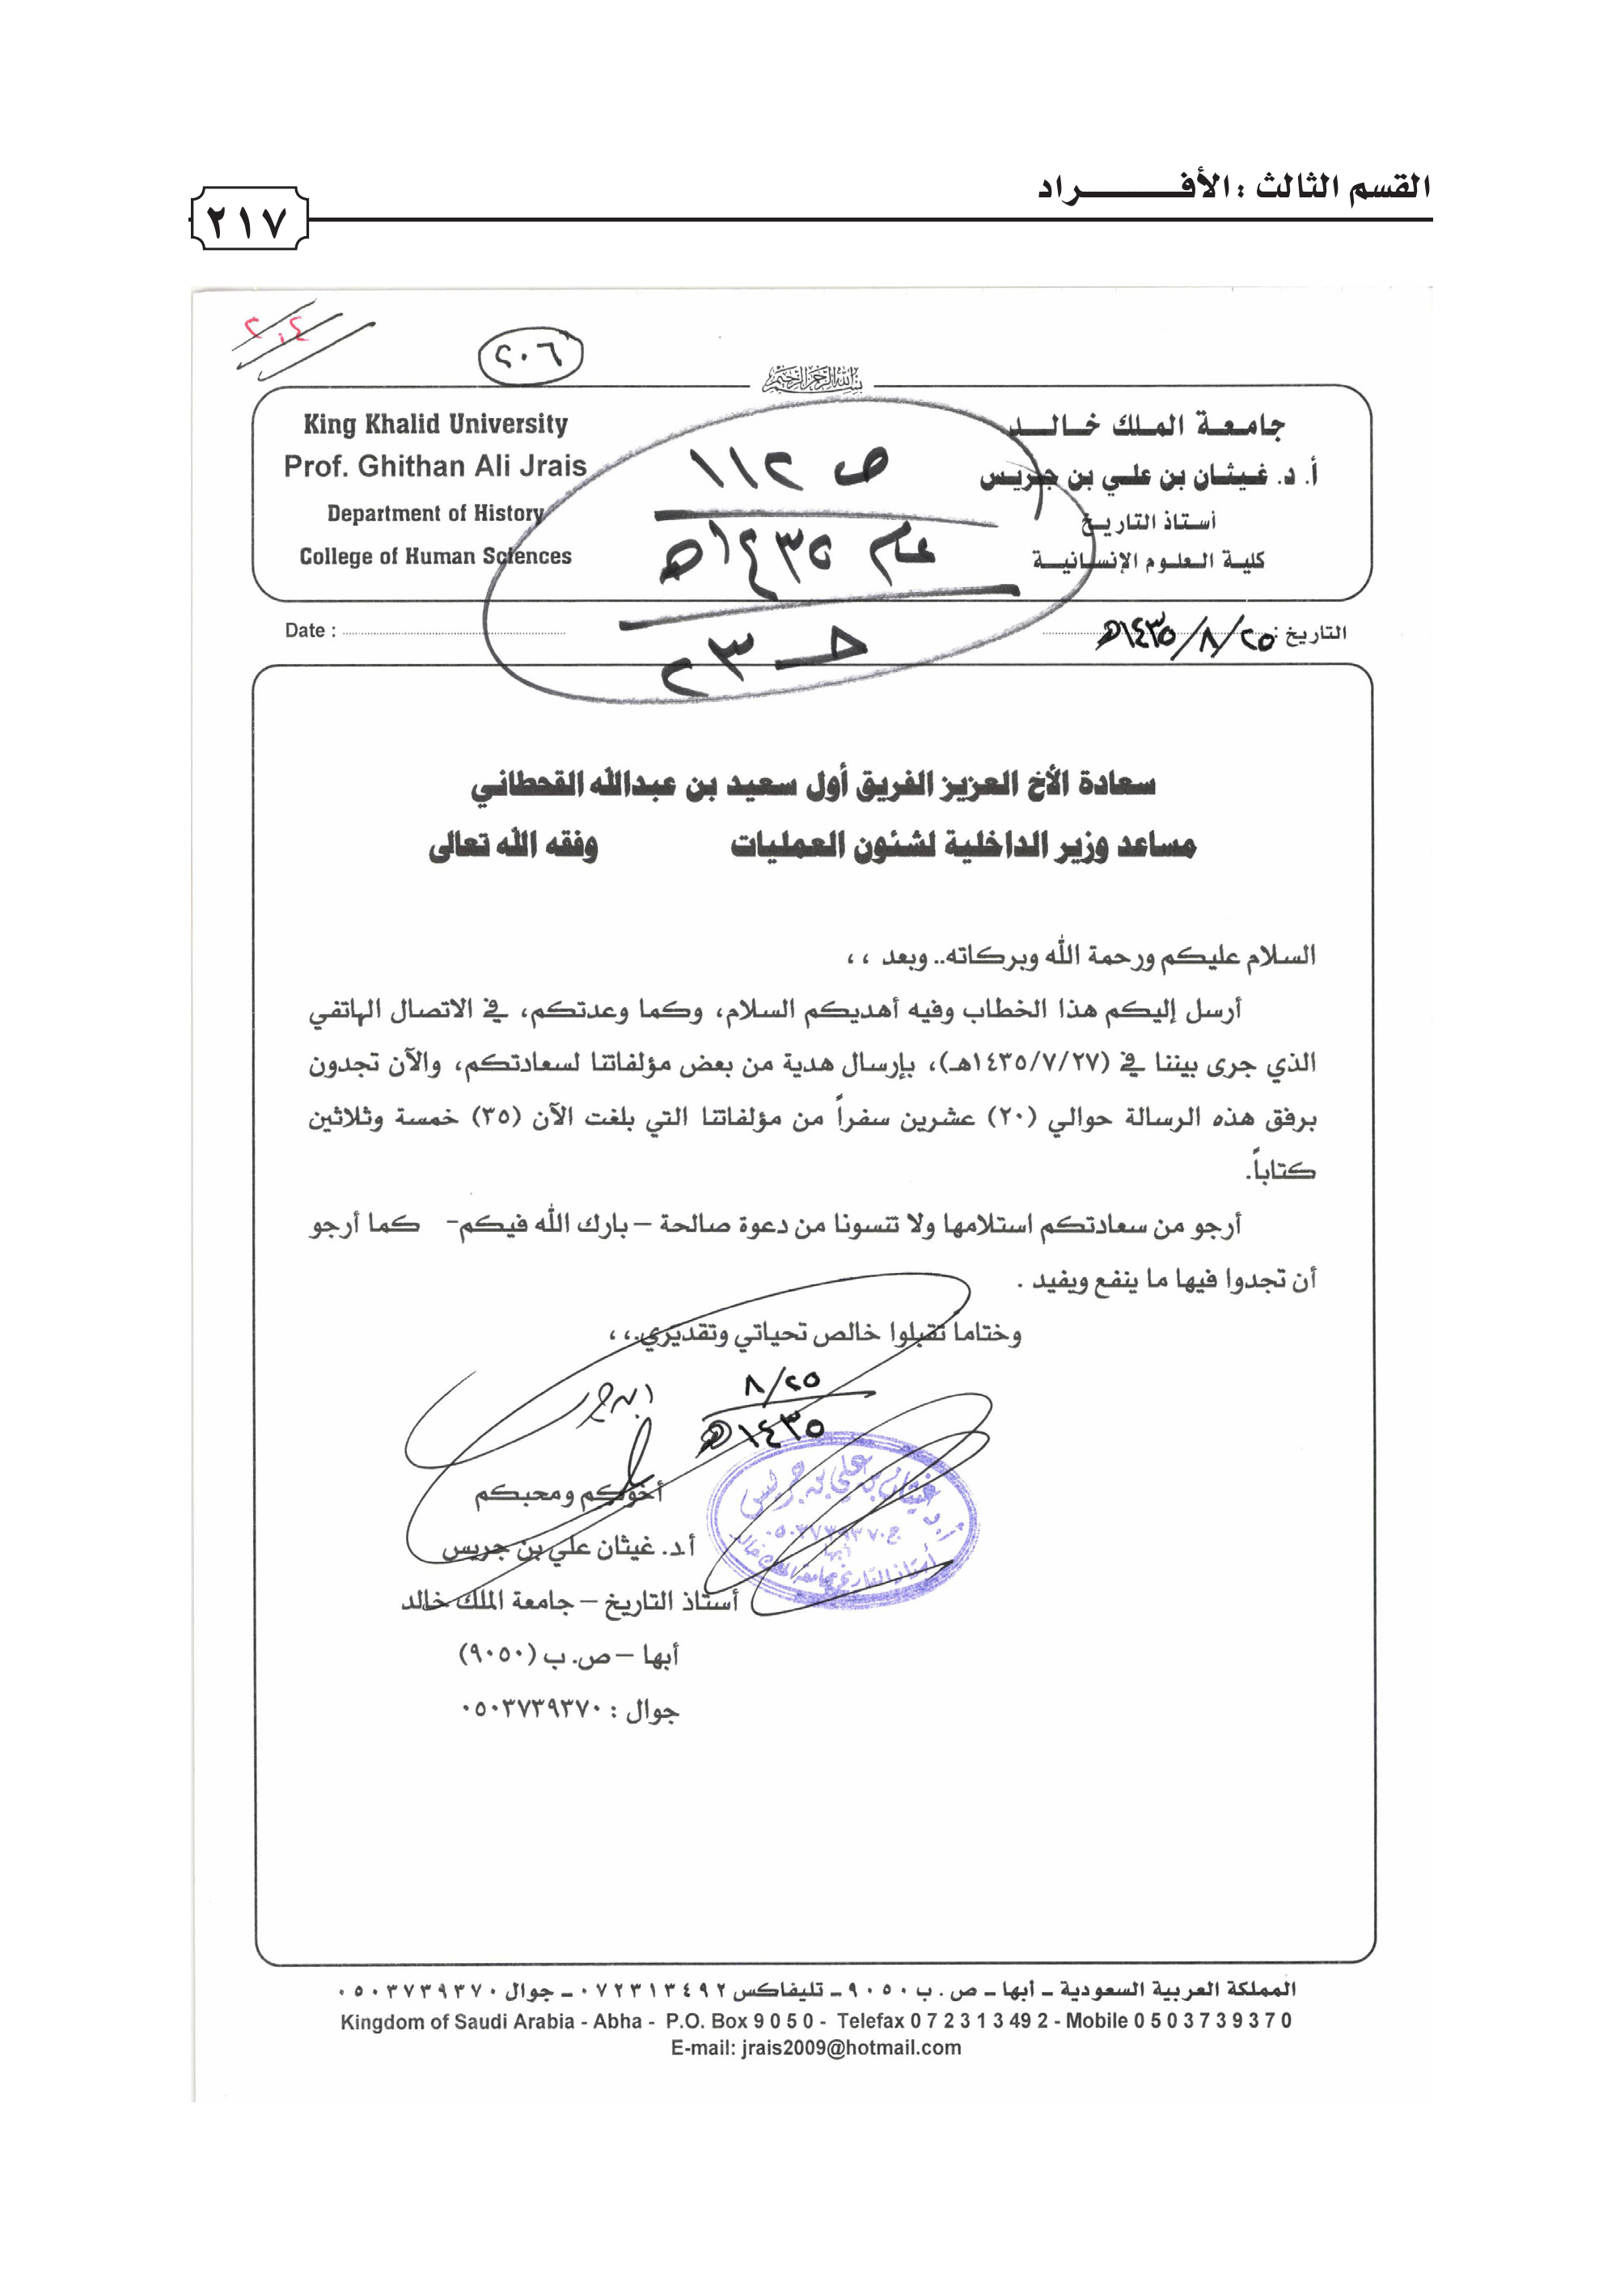 القسم الثالث : الأفـــــــــراد
٢١٧
٢٠٤
٢٠٦
بسم الله الرحمن الرحيم
جامعة الملك خالد
أ. د. غيثان بن علي بن جريس
أستاذ التاريخ
كلية العلوم الإنسانية
King Khalid University
Prof. Ghithan Ali Jrais
Department of History
College of Human Sciences
ص ١١٢
عام ١٤٣٥هـ
حـ ٢٣
التاريخ : ٢٥/ ٨/ ١٤٣٥هـ
Date :
سعادة الأخ العزيز الفريق أول سعيد بن عبدالله القحطاني
مساعد وزير الداخلية لشئون العمليات وفقه الله تعالى
السلام عليكم ورحمة الله وبركاته.. وبعد ،،
أرسل إليكم هذا الخطاب وفيه أهديكم السلام، وكما وعدتكم، في الاتصال الهاتفي
الذي جرى بيننا في (١٤٣٥/٧/٢٧هـ)، بإرسال هدية من بعض مؤلفاتنا لسعادتكم، والآن تجدون
برفق هذه الرسالة حوالي (٢٠) عشرين سفراً من مؤلفاتنا التي بلغت الآن (٣٥) خمسة وثلاثين
كتاباً.
أرجو من سعادتكم استلامها ولا تنسونا من دعوة صالحة – بارك الله فيكم- كما أرجو
أن تجدوا فيها ما ينفع ويفيد .
وختاما تقبلوا خالص تحياتي وتقديري.،،
٢٥/ ٨
١٤٣٥هـ
أخوكم ومحبكم
أ.د. غيثان علي بن جريس
أستاذ التاريخ – جامعة الملك خالد
أبها – ص. ب (٩٠٥٠)
جوال : ٠٥٠٣٧٣٩٣٧٠
أ. د. غيثان بن علي بن جريس
ج ٠٥٠٣٧٣٩٣٧٠
أبها
أستاذ التاريخ بجامعة الملك خالد
المملكة العربية السعودية ـ أبها ـ ص . ب ٩٠٥٠ ـ تليفاكس ٠٧٢٣١٣٤٩٢ ـ جوال ٠٥٠٣٧٣٩٣٧٠
Kingdom of Saudi Arabia - Abha - P.O. Box 9 0 5 0 - Telefax 0 7 2 3 1 3 49 2 - Mobile 0 5 0 3 7 3 9 3 7 0
E-mail: jrais2009@hotmail.com